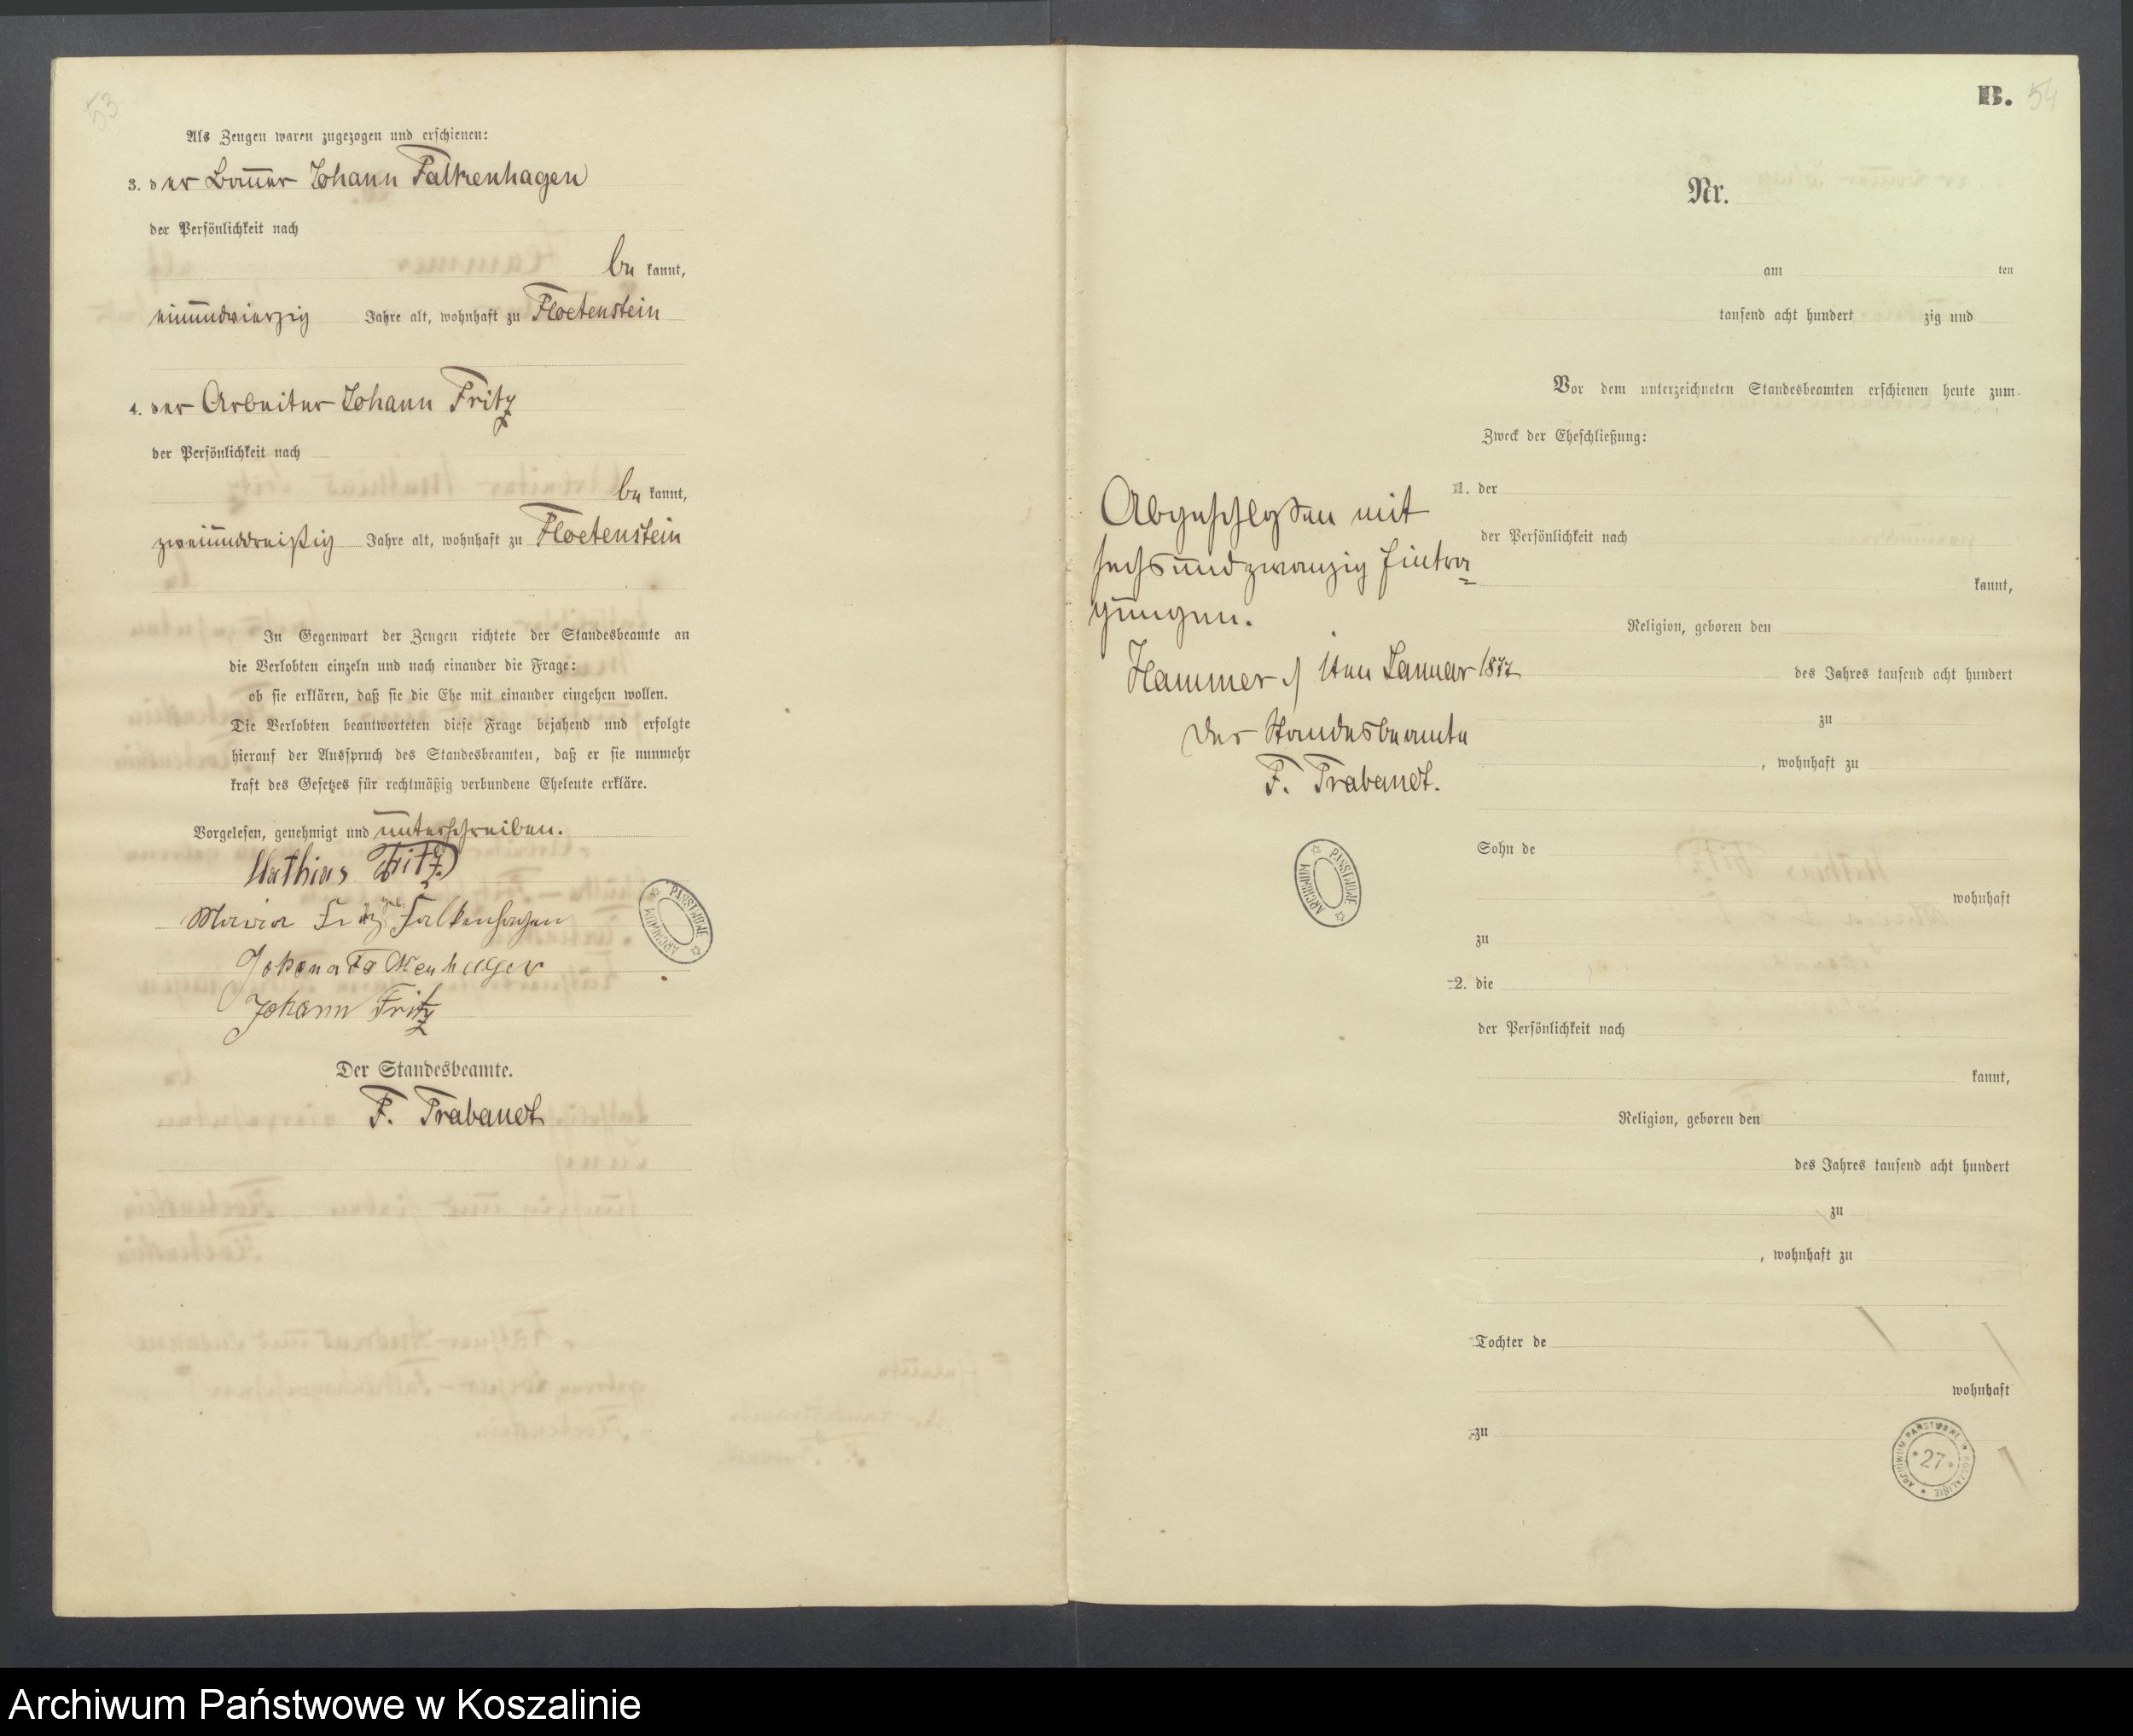 53
Als Zeugen waren zugezogen und erschienen:
3. der Bauer Johann Falkenhagen
der Persönlichkeit nach
be kannt,
einundvierzig Jahre alt, wohnhaft zu Floetenstein
4. der Arbeiter Johann Fritz
der Persönlichkeit nach
be kannt,
zweiunddreißig Jahre alt, wohnhaft zu Floetenstein
In Gegenwart der Zeugen richtete der Standesbeamte an
die Verlobten einzeln und nach einander die Frage:
ob sie erklären, daß sie die Ehe mit einander eingehen wollen.
Die Verlobten beantworteten diese Frage bejahend und erfolgte
hierauf der Ausspruch des Standesbeamten, daß er sie nunmehr
kraft des Gesetzes für rechtmäßig verbundene Eheleute erkläre.
Vorgelesen, genehmigt und unterschreiben.
Mathias Fritz
Maria Fritz geb. Falkenhagen
Johann Falkenhagen
Johann Fritz
Der Standesbeamte.
F. Trabandt
ARCHIWUM PAŃSTWOWE
B. 54
Nr.
am ten
tausend acht hundert zig und
Vor dem unterzeichneten Standesbeamten erschienen heute zum
Zweck der Eheschließung:
1. der
der Persönlichkeit nach
kannt,
Religion, geboren den
des Jahres tausend acht hundert
zu
, wohnhaft zu
Sohn de
wohnhaft
zu
2. die
der Persönlichkeit nach
kannt,
Religion, geboren den
des Jahres tausend acht hundert
zu
, wohnhaft zu
Tochter de
wohnhaft
zu
Abgeschlossen mit
sechsundzwanzig Eintra-
gungen.
Hammer, 1ten Januar 1877
Der Standesbeamte
F. Trabandt.
ARCHIWUM PAŃSTWOWE
ARCHIWUM PAŃSTWOWE W KOSZALINIE
27
Archiwum Państwowe w Koszalinie